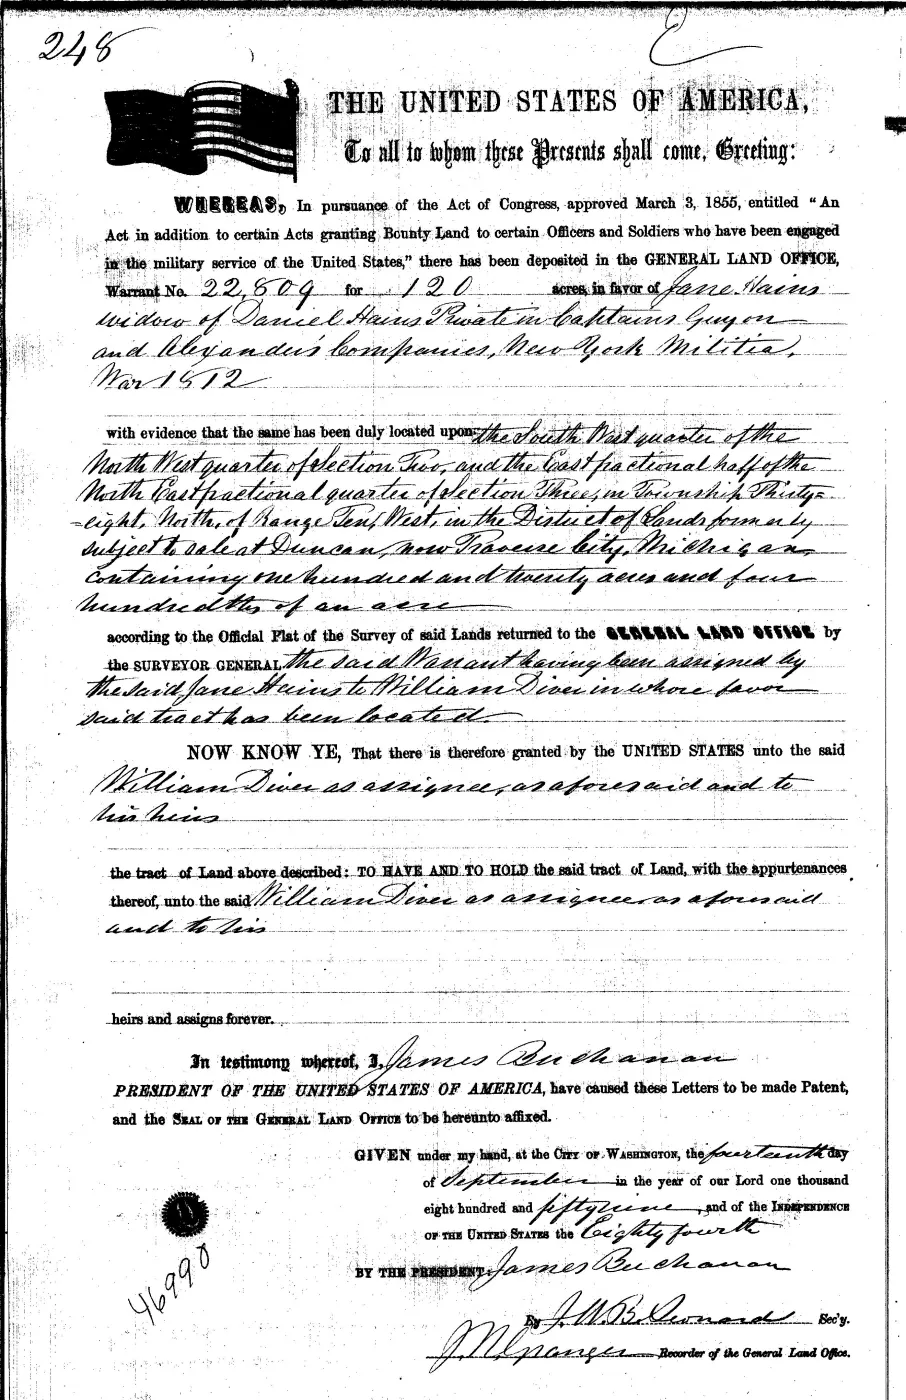 248
THE UNITED STATES OF AMERICA,
To all to whom these Presents shall come, Greeting:
WHEREAS, In pursuance of the Act of Congress, approved March 3, 1855, entitled "An
Act in addition to certain Acts granting Bounty Land to certain Officers and Soldiers who have been engaged
in the military service of the United States," there has been deposited in the GENERAL LAND OFFICE,
Warrant No. 22,809 for 120 acres, in favor of Jane Hains
widow of Daniel Hains Private in Captains Guyon
and Alexander's Companies, New York Militia,
War 1812
with evidence that the same has been duly located upon the South West quarter of the
North West quarter of Section Two, and the East fractional half of the
North East fractional quarter of Section Three, in Township Thirty=
=eight, North, of Range Ten, West, in the District of Lands formerly
subject to sale at Duncan, now Traverse City, Michigan,
containing one hundred and twenty acres and four
hundredths of an acre
according to the Official Plat of the Survey of said Lands returned to the GENERAL LAND OFFICE by
the SURVEYOR GENERAL the said Warrant having been assigned by
the said Jane Hains to William Diver in whose favor
said tract has been located
NOW KNOW YE, That there is therefore granted by the UNITED STATES unto the said
William Diver as assignee, as aforesaid and to
his heirs
the tract of Land above described: TO HAVE AND TO HOLD the said tract of Land, with the appurtenances
thereof, unto the said William Diver as assignee as aforesaid
and to his
heirs and assigns forever.
In testimony whereof, I, James Buchanan
PRESIDENT OF THE UNITED STATES OF AMERICA, have caused these Letters to be made Patent,
and the SEAL OF THE GENERAL LAND OFFICE to be hereunto affixed.
GIVEN under my hand, at the CITY OF WASHINGTON, the fourteenth day
of September in the year of our Lord one thousand
eight hundred and fifty nine, and of the INDEPENDENCE
OF THE UNITED STATES the Eighty fourth
BY THE PRESIDENT: James Buchanan
By J. W. B. Leonard Sec'y.
J. N. Granger Recorder of the General Land Office.
46990